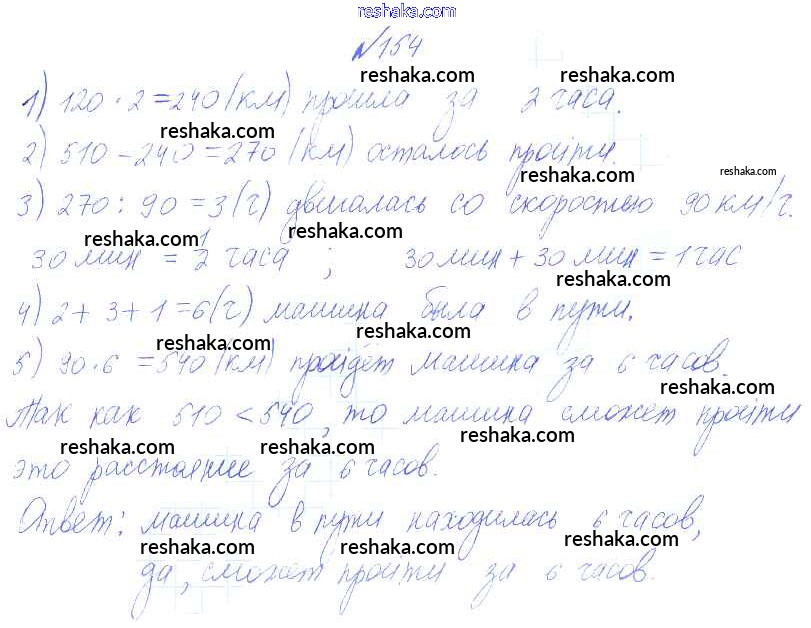 reshaka.com
№154
reshaka.com
1) 120 · 2 = 240 (км) прошла за 2 часа.
reshaka.com
reshaka.com
2) 510 - 240 = 270 (км) осталось пройти.
reshaka.com
reshaka.com
3) 270 : 90 = 3 (ч) двигалась со скоростью 90 км/ч.
reshaka.com
reshaka.com
30 мин = 1/2 часа ; 30 мин + 30 мин = 1 час
reshaka.com
4) 2 + 3 + 1 = 6 (ч) машина была в пути.
reshaka.com
reshaka.com
5) 90 · 6 = 540 (км) пройдёт машина за 6 часов.
reshaka.com
Так как 510 < 540, то машина сможет пройти
reshaka.com
reshaka.com
reshaka.com
это расстояние за 6 часов.
Ответ: машина в пути находилась 6 часов,
reshaka.com
reshaka.com
reshaka.com
да, сможет пройти за 6 часов.